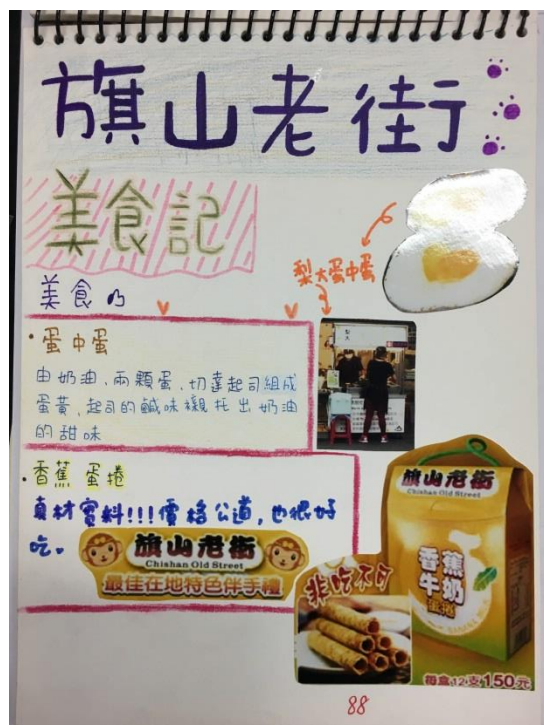 旗山老街
美食記
梨大蛋中蛋
美食乃
•蛋中蛋
由奶油、兩顆蛋、切達起司組成
蛋黃、起司的鹹味襯托出奶油
的甜味
•香蕉蛋捲
真材實料!!!價格公道,也很好
吃。
旗山老街
Chishan Old Street
最佳在地特色伴手禮
旗山老街
Chishan Old Street
香蕉
牛奶
蛋捲
非吃不可
每盒12支150元
88